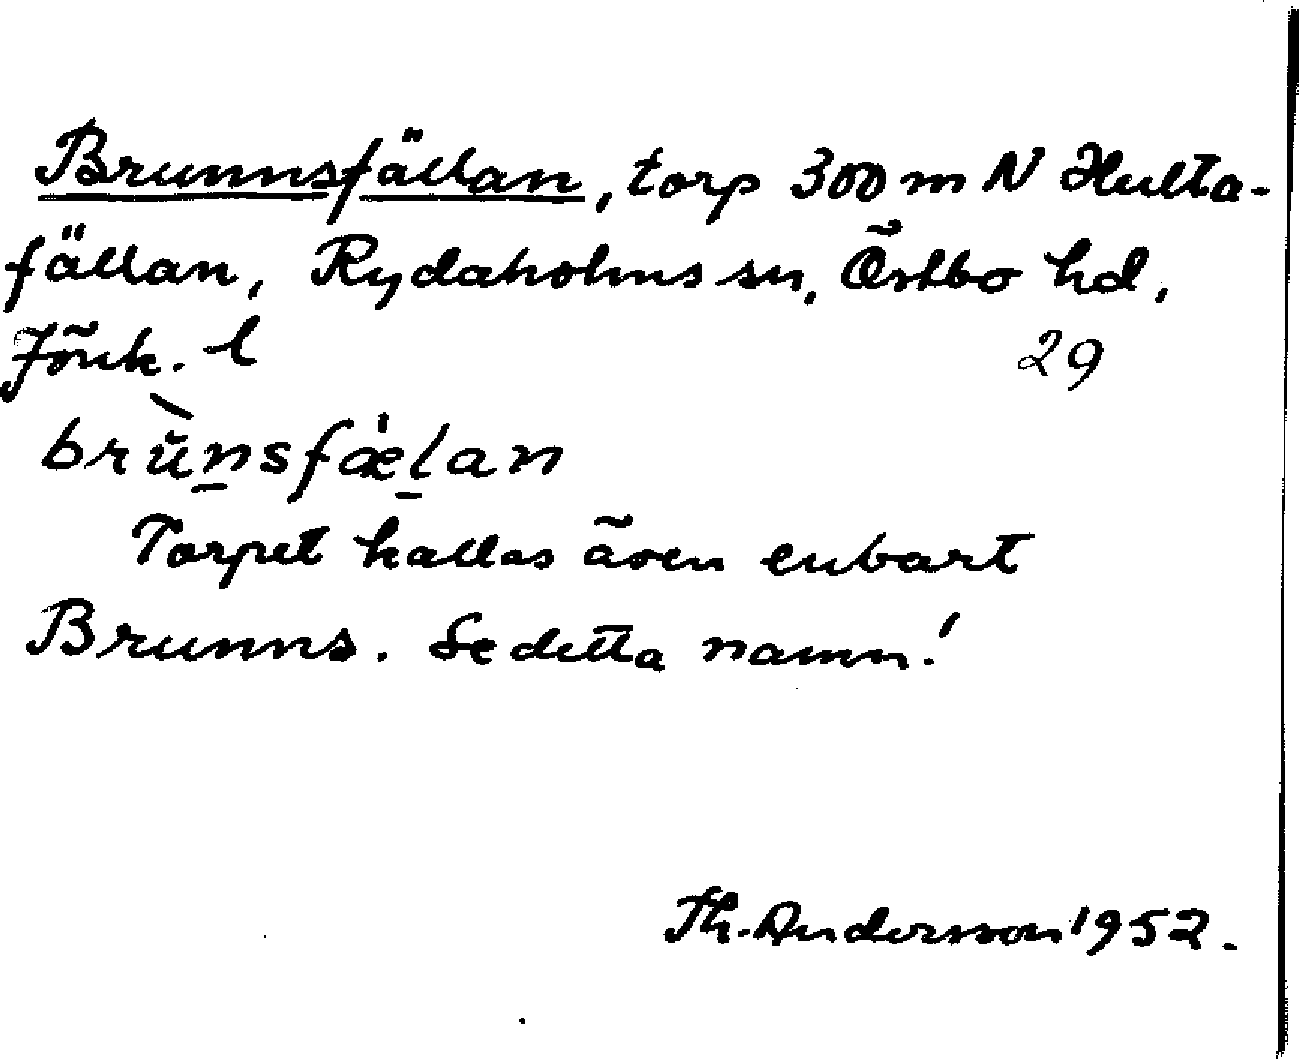 Brunnsfällan, torp 300 m N Hulta-
fällan, Rydaholms sn, Östbo hd,
Jönk. l 29
brùn̲sfæ̍l̲an
Torpet kallas även enbart
Brunns. Se detta namn!
Th. Andersson 1952.